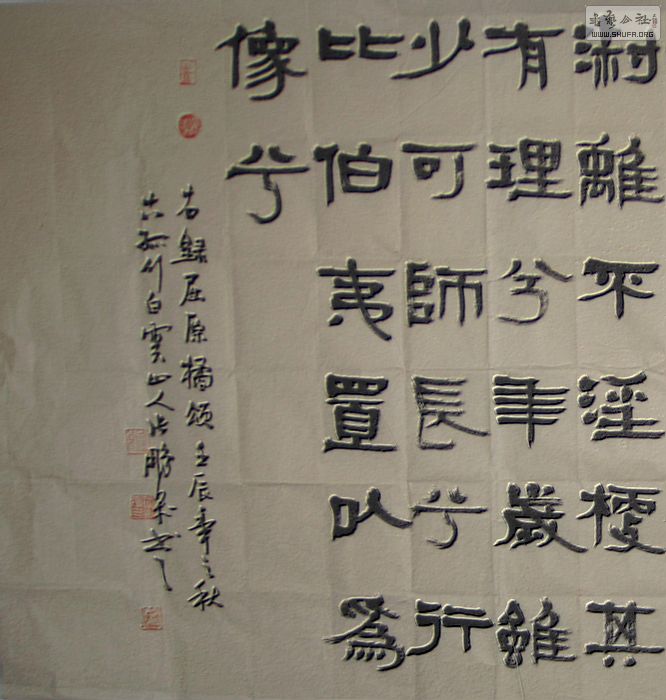 淑離不淫梗其
有理兮年歲雖
少可師長兮行
比伯夷置以為
像兮
右錄屈原橘頌壬辰年之秋
古孤竹白雲山人張鵬
书艺公社
WWW.SHUFA.ORG